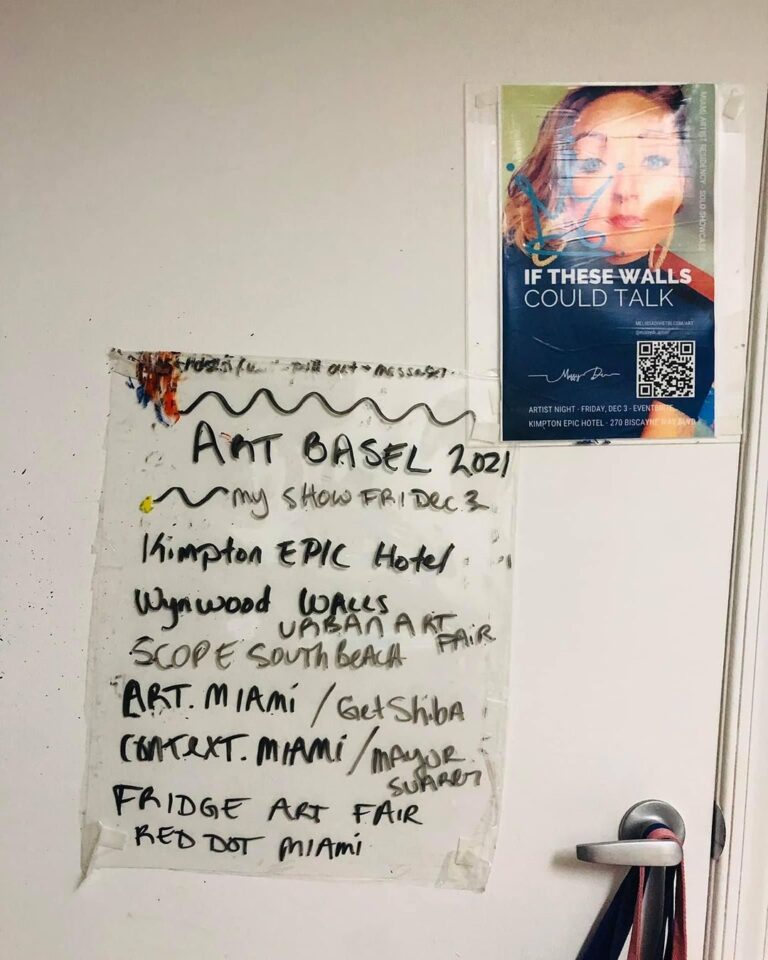 ART BASEL 2021
my SHOW FRI Dec 3
Kimpton EPIC Hotel
Wynwood WALLS
URBAN ART FAIR
SCOPE SOUTH BEACH
ART. MIAMI / GetShibA
CONTEXT. MIAMI / MAYOR
SUAREZ
FRIDGE ART FAIR
RED DOT MIAMI
MIAMI ARTIST RESIDENCY - SOLO SHOWCASE
IF THESE WALLS
COULD TALK
ARTIST NIGHT - FRIDAY, DEC 3 - EVENTBRITE
KIMPTON EPIC HOTEL - 270 BISCAYNE WAY BLVD